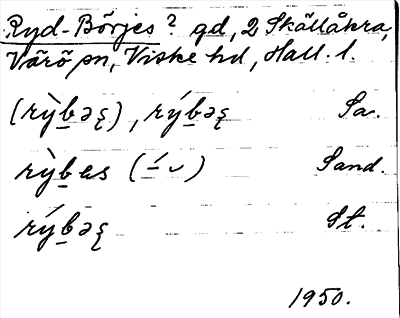 Ryd-Börjes? gd, 2 Skällåkra,
Värö sn, Viske hd, Hall. l.
(rỳb̲əs̨), rýb̲əs̨ Sa.
rỳb̲as (–́ ⌣) Sand.
rýb̲əs̨ St.
1950.